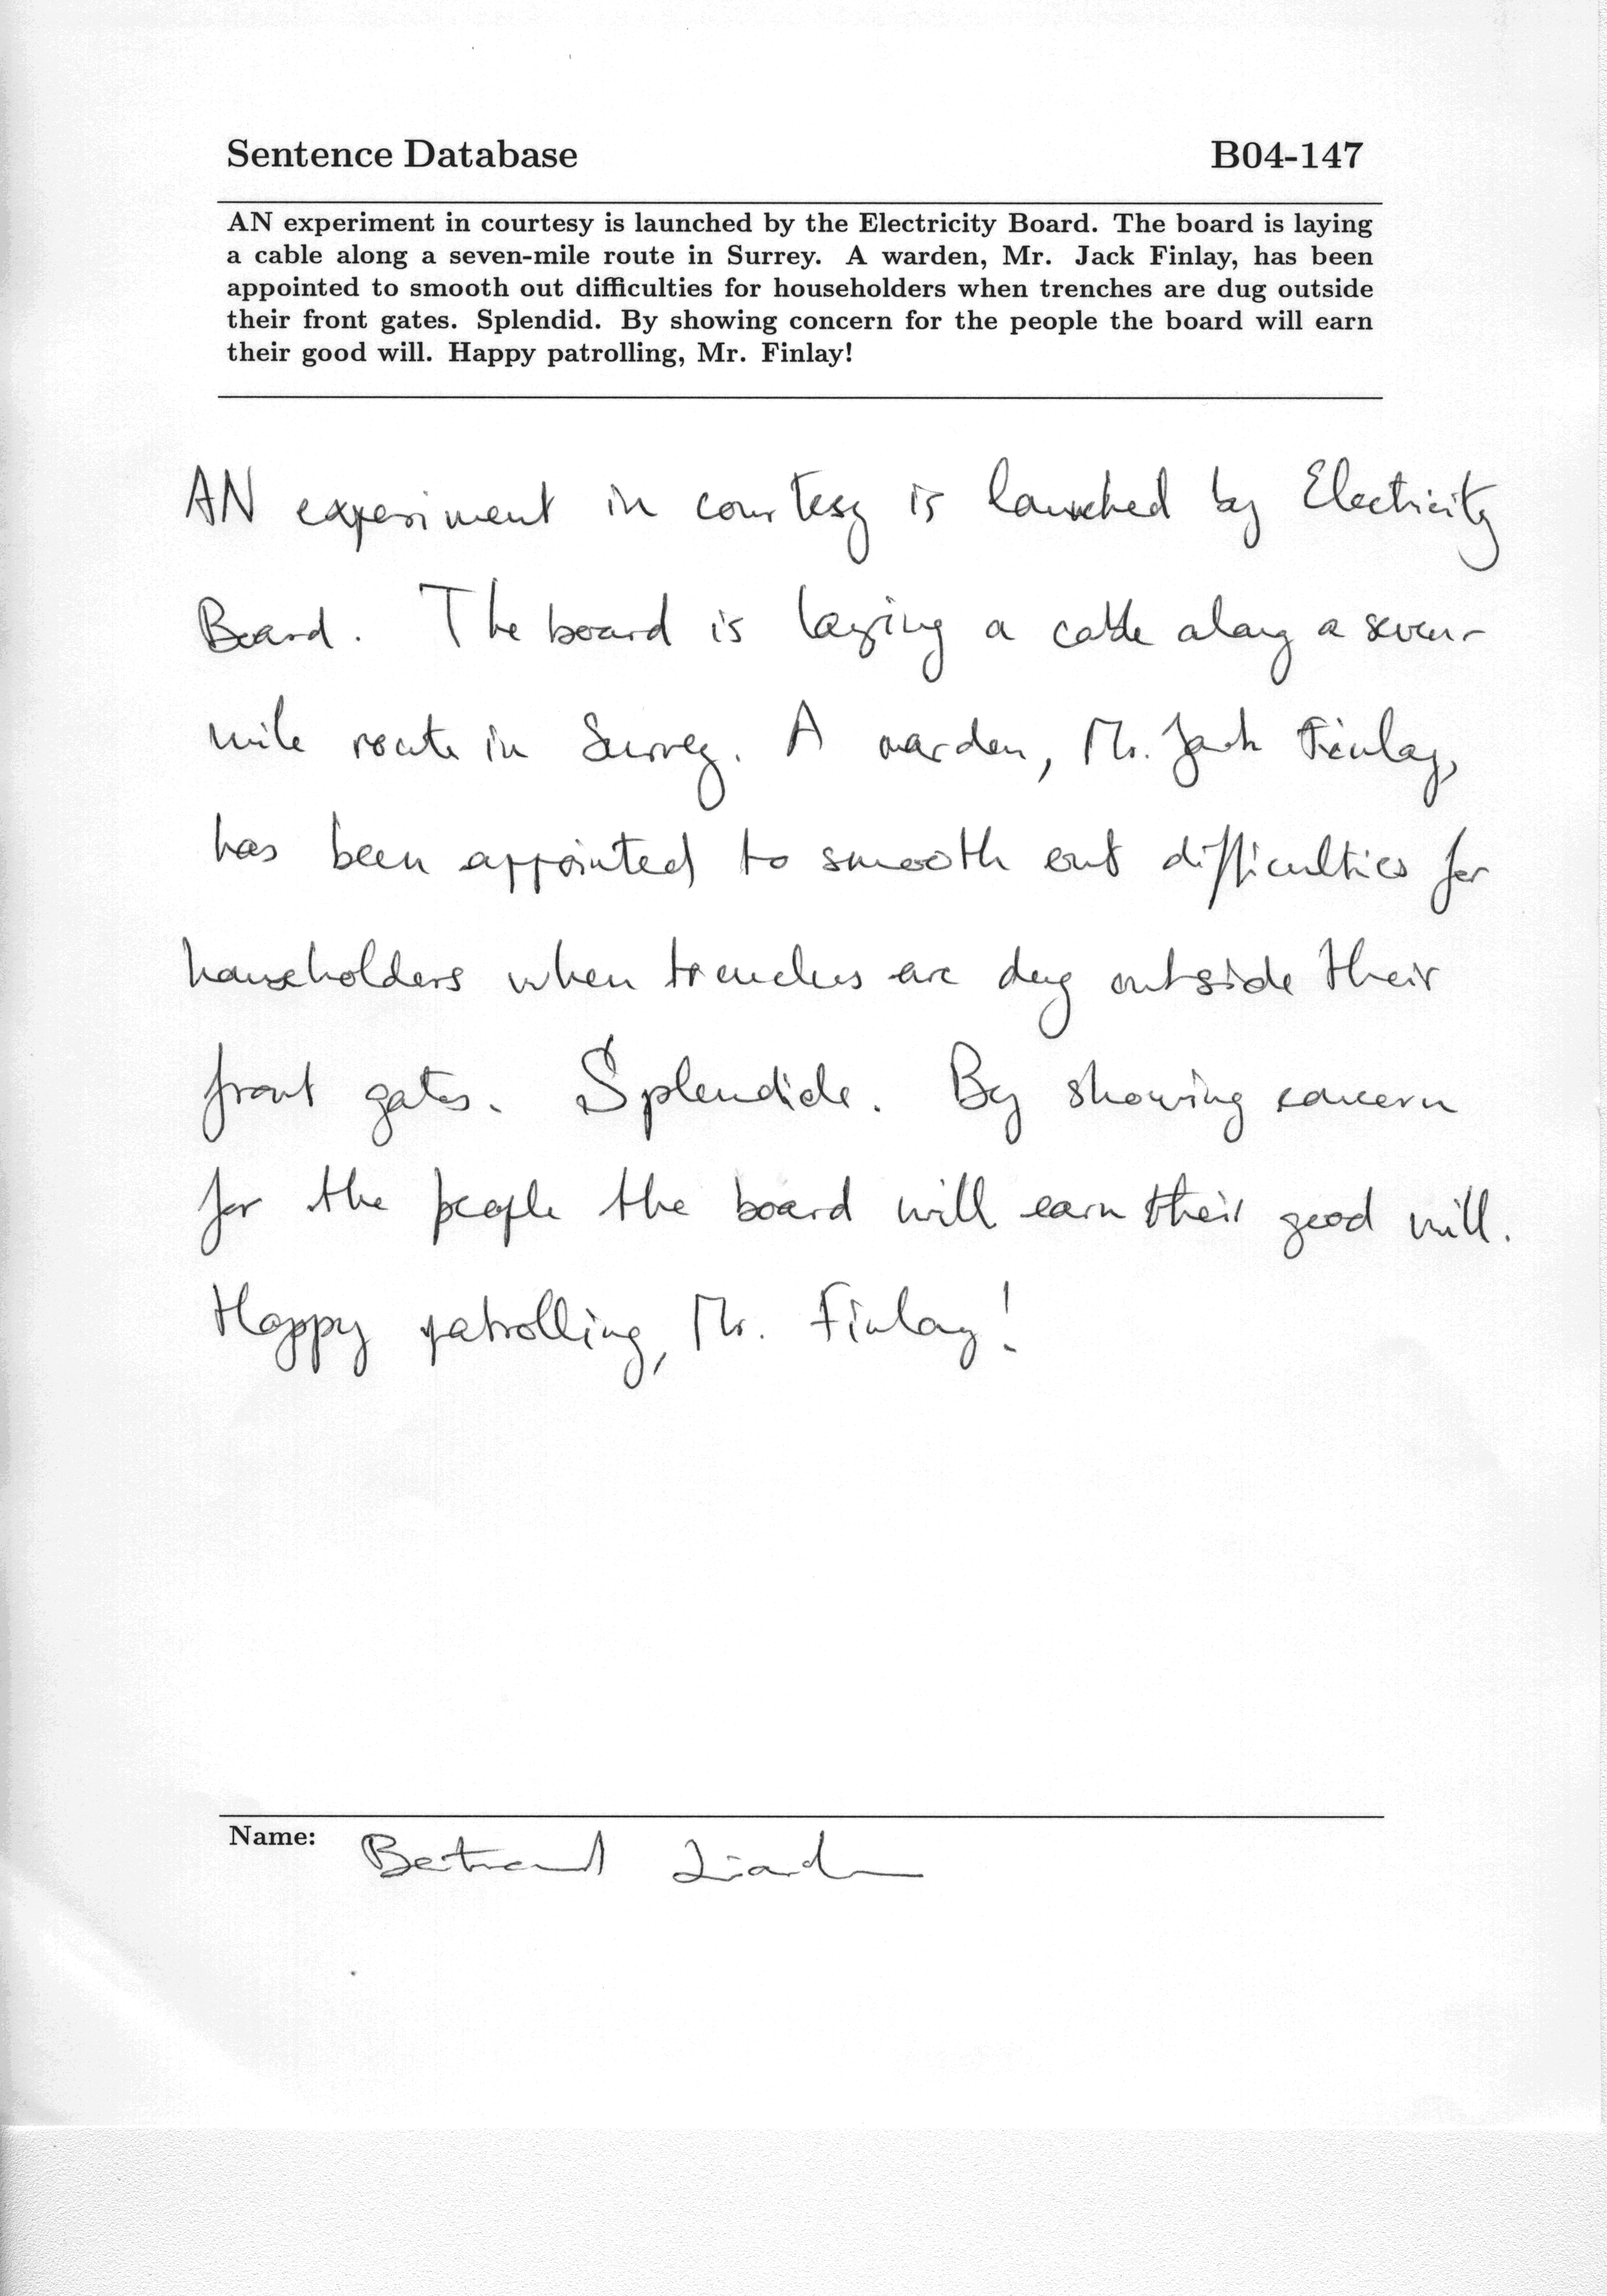 Sentence Database B04-147
AN experiment in courtesy is launched by the Electricity Board. The board is laying
a cable along a seven-mile route in Surrey. A warden, Mr. Jack Finlay, has been
appointed to smooth out difficulties for householders when trenches are dug outside
their front gates. Splendid. By showing concern for the people the board will earn
their good will. Happy patrolling, Mr. Finlay!
AN experiment in courtesy is launched by Electricity
Board. The board is laying a cable along a seven-
mile route in Surrey. A warden, Mr. Jack Finlay,
has been appointed to smooth out difficulties for
householders when trenches are dug outside their
front gates. Splendide. By showing concern
for the people the board will earn their good will.
Happy patrolling, Mr. Finlay!
Name: Bertrand